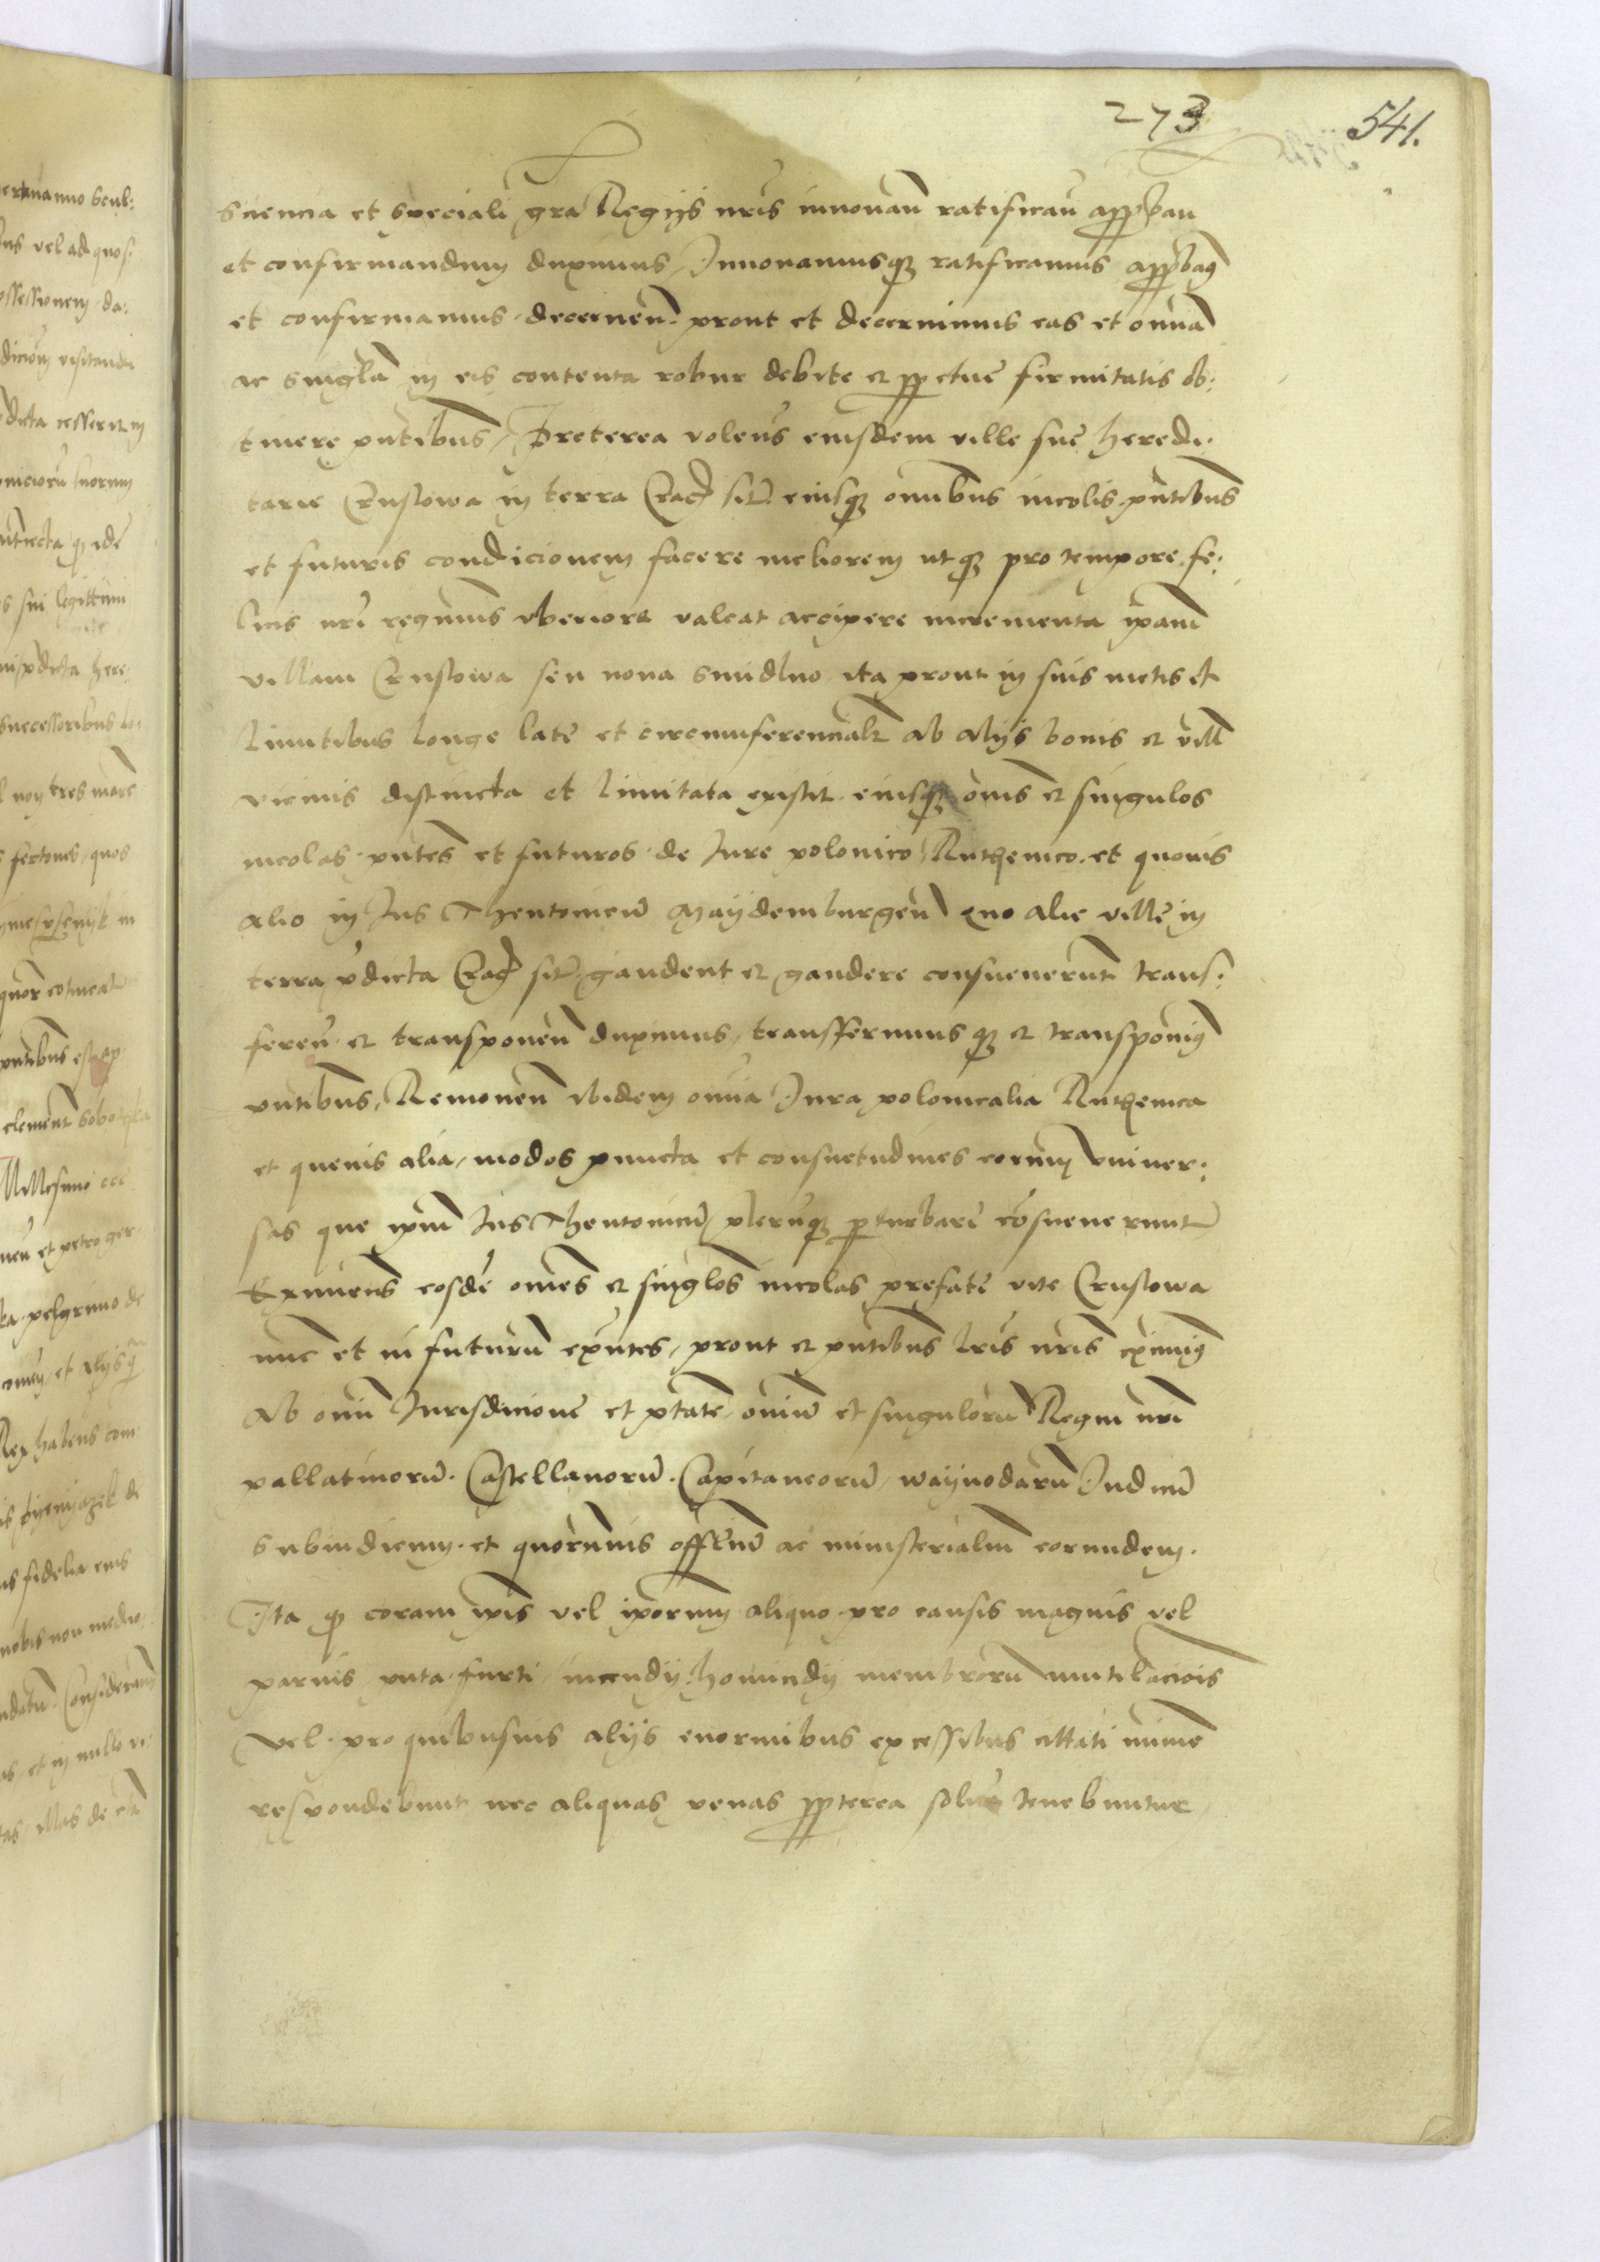 273
541.
Sciencia et speciali gra Regijs nris innovan ratifican approban
et confirmandum duximus, Innovamusq ratificamus approbam
et confirmamus decernen. prout et decernimus eas et omnia
ac singla in eis contenta robur debite et perpetue firmitatis ob:
tinere pntibus, Preterea volens eiusdem ville sue heredi:
tarie Crustowa in terra Crac sit. eiusq omnibus incolis pntibus
et futuris condicionem facere meliorem utq pro tempore fe:
licis nri regiminis uberiora valeat accipere incrementa ipam
villam Crustowa seu nova Smidlno ita prout in suis metis et
limitibus longe late et circumferencialr ab alijs bonis et vill
vicinis distincta et limitata existit eiusq omnes et singulos
incolas pntes et futuros de Jure polonico Ruthenico et quovis
alio in Jus Theutonicu Maydemburgen quo alie ville in
terra pdicta Crac sit. gaudent et gaudere consueverunt trans:
feren et transponen duximus, transferimus q et transponim
pntibus, Removen ibidem omnia Jura polonicalia Ruthenica
et quevis alia, modos puncta et consuetudines eorum univer:
sas que ipm Jus Theutonicu pleruq perturbare cosueverunt
Eximens eosde omes et singlos incolas prefate vile Crustowa
nuc et in futuru exntes, prout et pntibus lris nris eximim
Ab omi Jurisdicione et ptate omiu et singuloru Regni nri
pallatinoru. Castellanoru. Capitaneoru, waywodaru Judicu
Subiudicum. et quorumvis officiu ac ministerialiu eorundem.
Ita q coram ipis vel iporum aliquo pro causis magnis vel
parvis puta furti incendij homicidij membroru mutilaciois
vel pro quibusvis alijs enormibus excessibus cittati mime
respondebunt nec aliquas penas ppterea solve tenebuntur